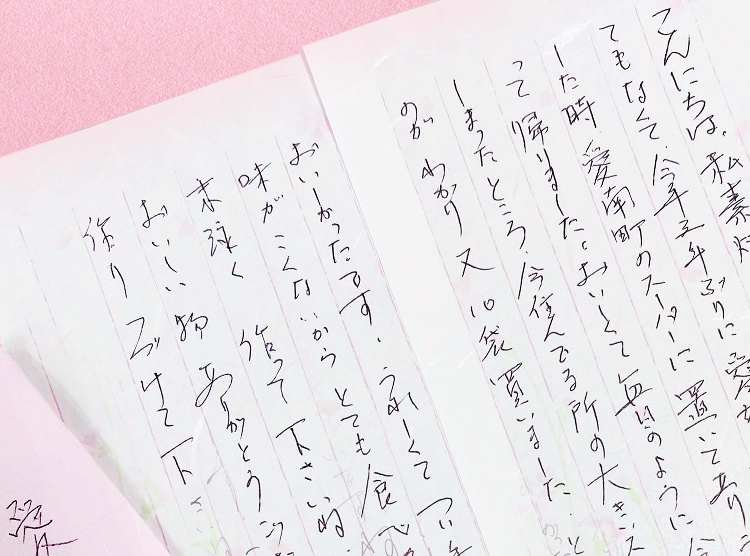 こんにちは。私素麺
てもなくて、今年五年ぶりに愛
した時、愛南町のスーパーに置いてあり
って帰りました。おいしくて毎日のように
しまったところ、今住んでる所の大きいス
のがわかり又10袋買いました。と
おいしかったです。うれしくてつい
味がこくないからとても食べ
末永く作って下さいね
おいしい物ありがとうご
作りつづけて下